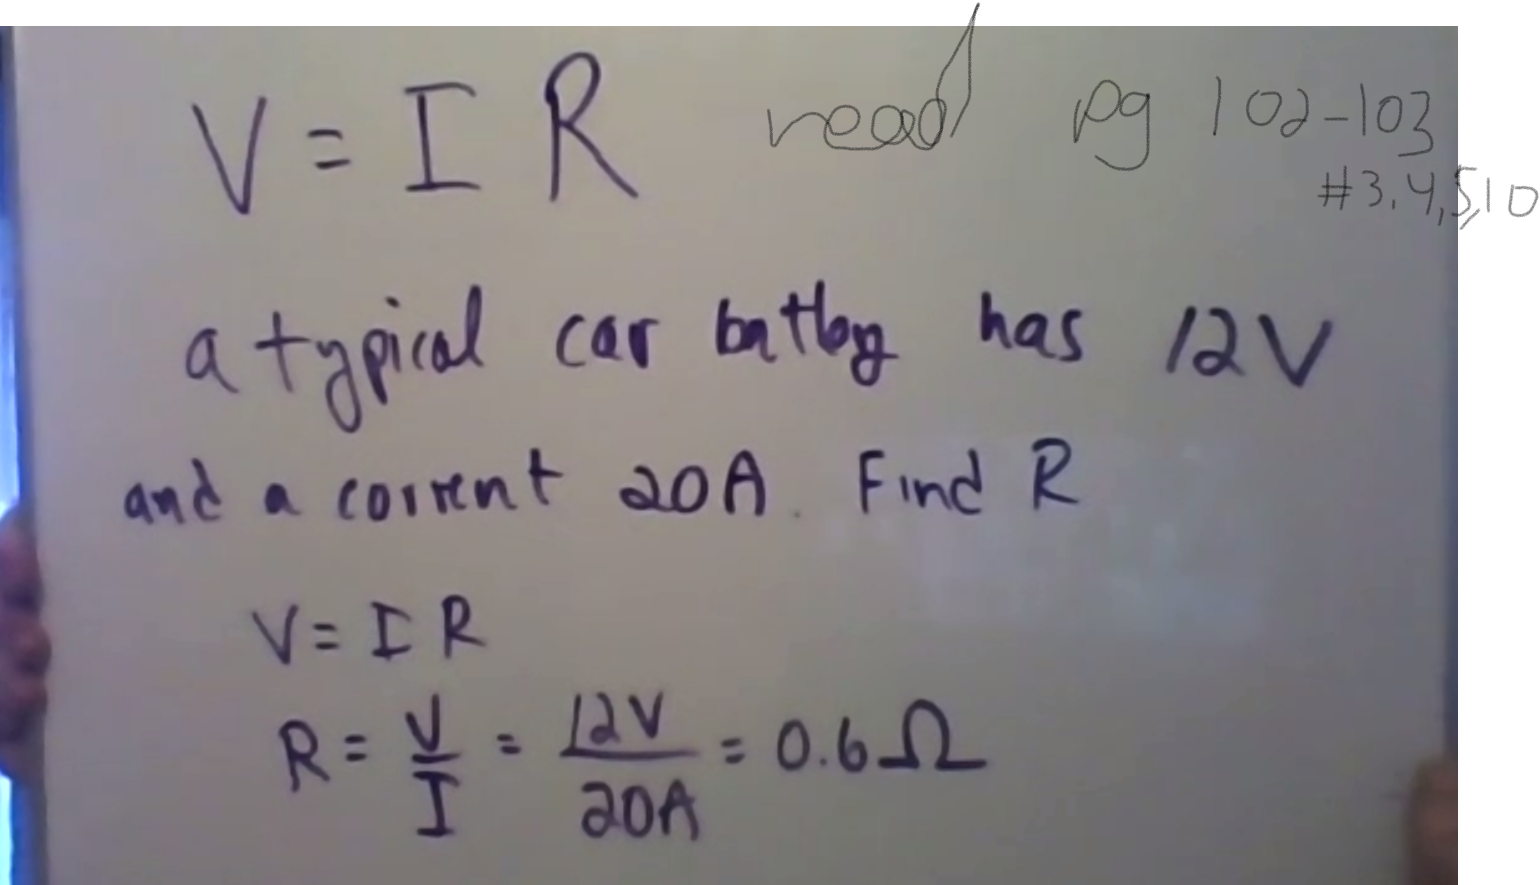 V = I R read pg 102-103
#3,4,5,10
a typical car battery has 12V
and a current 20A. Find R
V = I R
R = V/I = 12V/20A = 0.6 Ω